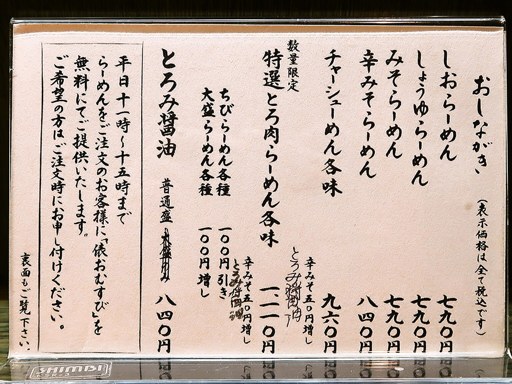 おしながき
（表示価格は全て税込です）
しおらーめん 七九〇円
しょうゆらーめん 七九〇円
みそらーめん 七九〇円
辛みそらーめん 八四〇円
チャーシューめん各味 九六〇円
辛みそ五〇円増し
とろみ醤油
数量限定
特選とろ肉らーめん各味 一一一〇円
辛みそ五〇円増し
とろみ醤油
ちびらーめん各種 一〇〇円引き
大盛らーめん各種 一〇〇円増し
とろみ醤油 普通盛 八四〇円
平日十一時〜十五時まで
らーめんをご注文のお客様に「俵おむすび」を
無料にてご提供いたします。
ご希望の方はご注文時にお申し付けください。
裏面もご覧下さい。
SHIMBI